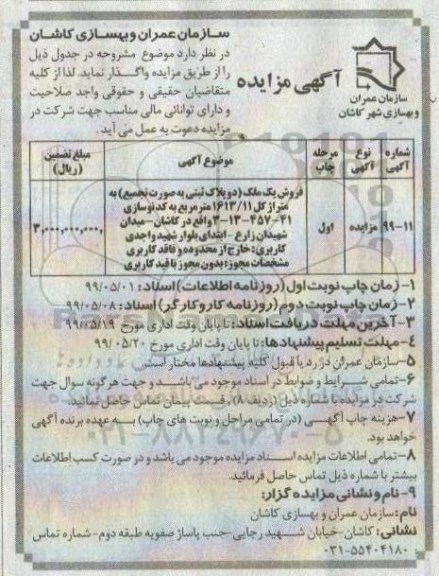 سازمان عمران و بهسازی کاشان
در نظر دارد موضوع مشروحه در جدول ذیل
را از طریق مزایده واگذار نماید. لذا از کلیه
متقاضیان حقیقی و حقوقی واجد صلاحیت
و دارای توانائی مالی مناسب جهت شرکت در
مزایده دعوت به عمل می آید.
آگهی مزایده
سازمان عمران
و بهسازی شهر کاشان
شماره آگهی
نوع آگهی
مرحله چاپ
موضوع آگهی
مبلغ تضمین (ریال)
۹۹-۱۱
مزایده
اول
فروش یک ملک (دو پلاک ثبتی به صورت تجمیع) به
متراژ کل ۱۶۱۳/۱۱ مترمربع به کد نوسازی
۳-۱۳-۴۵۷-۴۱ واقع در کاشان-میدان
شهیدان زارع - ابتدای بلوار شهید واحدی
کاربری: خارج از محدوده و فاقد کاربری
مشخصات مجوز: بدون مجوز با قید کاربری
۳,۰۰۰,۰۰۰,۰۰۰
۱- زمان چاپ نوبت اول (روزنامه اطلاعات) اسناد: ۹۹/۰۵/۰۱
۲- زمان چاپ نوبت دوم (روزنامه کار و کارگر) اسناد: ۹۹/۰۵/۰۸
۳- آخرین مهلت دریافت اسناد: تا پایان وقت اداری مورخ ۹۹/۰۵/۱۹
۴- مهلت تسلیم پیشنهادها: تا پایان وقت اداری مورخ ۹۹/۰۵/۲۰
۵-سازمان عمران در رد یا قبول کلیه پیشنهادها مختار است.
۶-تمامی شرایط و ضوابط در اسناد موجود می باشد و جهت هرگونه سوال جهت
شرکت در مزایده با شماره ذیل (ردیف ۸)، قسمت پیمان تماس حاصل نمائید.
۷-هزینه چاپ آگهی (در تمامی مراحل و نوبت های چاپ) به عهده برنده آگهی
خواهد بود.
۸-تمامی اطلاعات مزایده اسناد مزایده موجود می باشد و در صورت کسب اطلاعات
بیشتر با شماره ذیل تماس حاصل فرمائید.
۹-نام و نشانی مزایده گزار:
نام: سازمان عمران و بهسازی کاشان
نشانی: کاشان-خیابان شهید رجایی-جنب پاساژ صفویه طبقه دوم-شماره تماس
۰۳۱-۵۵۴۰۴۱۸۰
۰۲۱-۸۸۳۴۹۶۷۰-۵